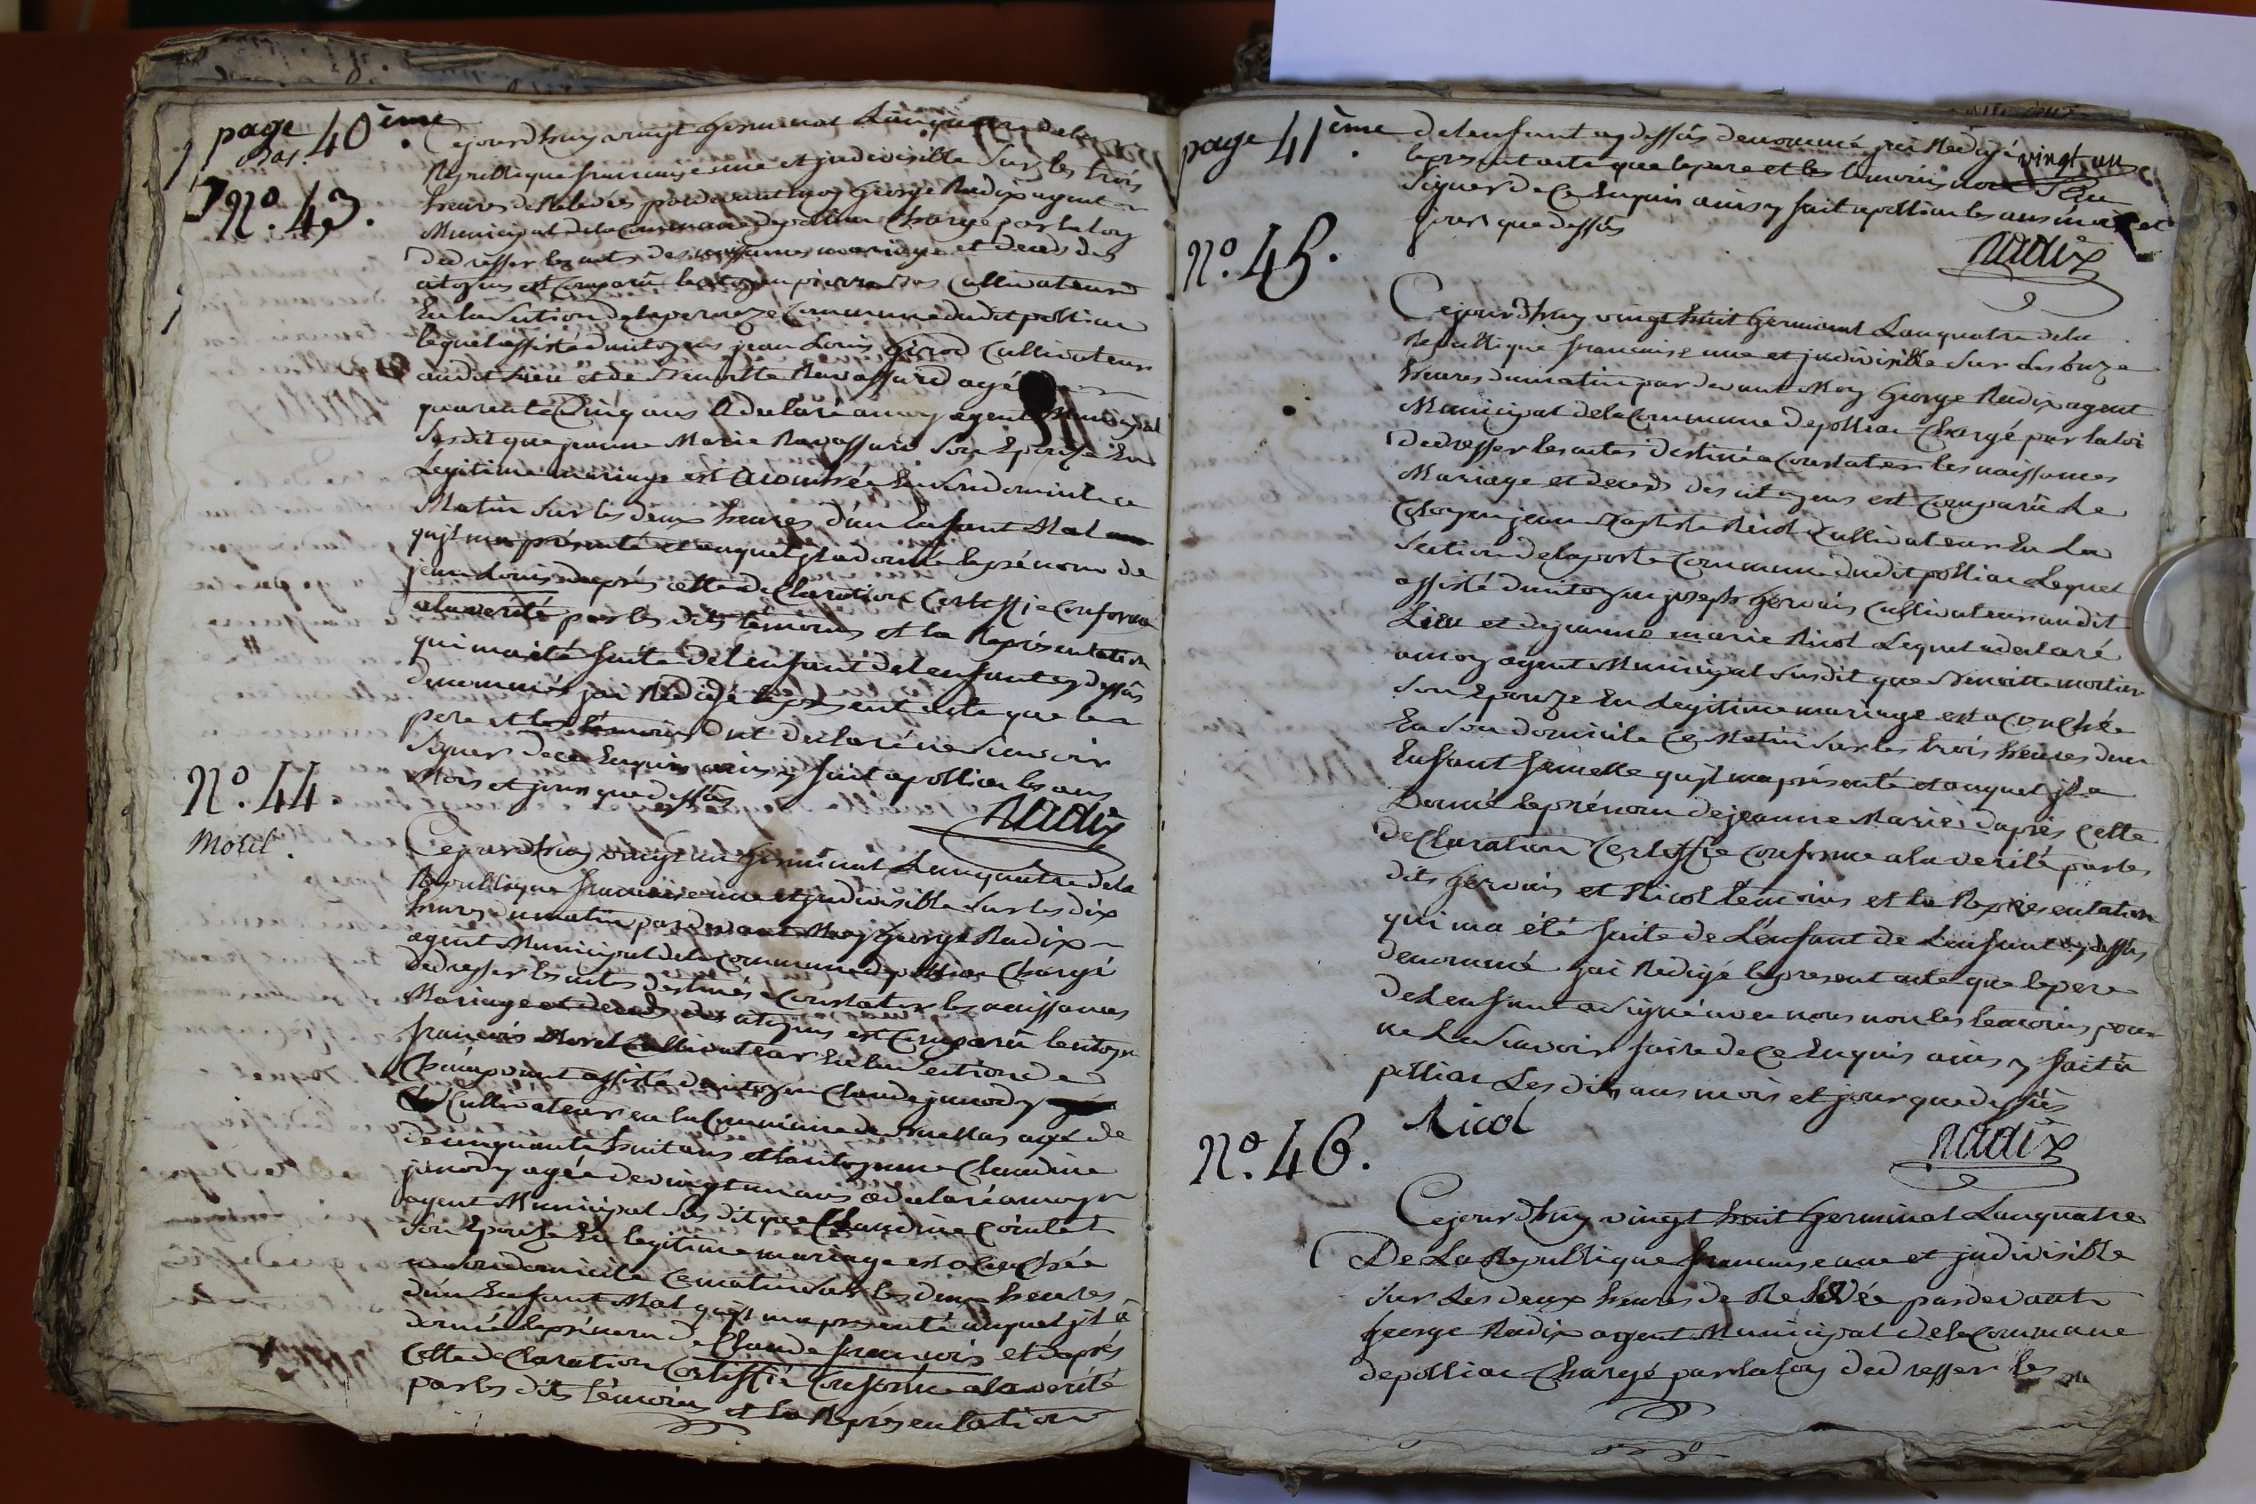 page 40ème
Bas.
Nº. 43.
Cejourdhuy vingt Germinal Lanquatre dela
Republique francaise une et jndivisible Sur les trois
heures de Relevées pardevant moy George Radix agent
Municipal dela Commune depolliac Chargé par la loy
dedresser les actes des naissances mariage et deces des
citoyens est Comparû lecitoyen pierre Bas Cultivateur
En la Section delaperouze Commune dudit polliac
lequel assisté ducitoyen jean Louis Girod Cultivateur
audit Lieu et de Benoitte Ravassard agé
quarente Cinq ans a declaré amoy agent Municipal
Susdit que jeanne Marie Ravassard Son Epouse En
Legitime mariage est acouchée En Son domicile ce
Matin Sur les deux heures d'un Enfant Mal
qujl ma presenté et auquel jl a donné leprénom de
jean Louis daprés cette declaration Certiffie Conforme
alaverité par les dits témoins et la Représentation
qui ma été faite delenfant delenfant cy dessûs
denommés jai Redigé le présent acte que le
pere et les témoins ont declaré ne Scavoir
Signer dece Enquis ainsy fait apolliac les ans
Mois et jour que dessûs
Radix
Nº. 44
Morel.
Cejourdhuy vingt un Germinal Lanquatre dela
Republique francaise une et jndivisible Sur les dix
heures dumatin pardevant Moy George Radix
agent Municipal dela Commune depolliac Chargé
dedresser les actes destinés a Constater les naissances
Mariage et deceds des citoyens est Comparû lecitoyen
francois Morel Cultivateur En la Section de
Champvent assisté du citoyen Claude junody
Cultivateur en la Commune de Mellas agé de
decinquante huit ans et la citoyenne Claudine
junody agée devingt un ans a declaré amoy
agent Municipal Sus dit que Claudine Coinlet
Son Epouse En legitime mariage est acouchée
en Son domicile Ce matin Sur les deux heures
d'un Enfant Mal qujl ma presenté auquel jl a
donné leprénom de Claude francois et daprés
Cette declaration Certiffié Conforme alaverité
par les dits témoins et la Représentation
page 41ème
delenfant cy dessûs denommé jai Redigé vingt un
leprésent acte que lepere et les témoins nont Seu
Signer de Ce Enquis ainsy fait apolliac les ans mois et
jour que dessûs
Radix
Nº. 45.
Cejourdhuy vingt huit Germinal Lanquatre dela
Republique francaise une et jndivisible Sur les onze
heures dumatin par devant Moy George Radix agent
Municipal dela Commune depolliac Chargé par la loi
dedresser les actes destinés a Constater les naissances
Mariage et deceds des citoyens est Comparû Le
Citoyen jean Baptiste Nicol Cultivateur En La
Section delaporte Commune dudit polliac Lequel
assisté ducitoyen joseph Gervais Cultivateur audit
Lieu et dejeanne marie Nicol Lequel a declaré
amoy agent Municipal Susdit que Benoitte mortier
Son Epouze En Legitime mariage est acouchée
En Son domicile Ce Matin Sur les trois heures dun
Enfant femelle qujl ma présenté et auquel jl a
Donné leprénom dejeanne Marie, daprés Cette
declaration Certiffie Conforme alaverité par les
dits Gervais et Nicol témoins et la Représentation
qui ma été faite de L'enfant de Lenfant cy dessûs
denommé jai Redigé le present acte que le pere
delenfant a Signé avec nous non les temoins pour
ne Le Scavoir faire de Ce Enquis ainsy fait à
polliac Les dits ans mois et jour que dessûs
Nicol
Radix
Nº. 46.
Cejourdhuy vingt huit Germinal Lanquatre
De La Republique francaise une et jndivisible
Sur Les deux heures de Relevée pardevant
George Radix agent Municipal dela Commune
depolliac Chargé parlaloy dedresser les